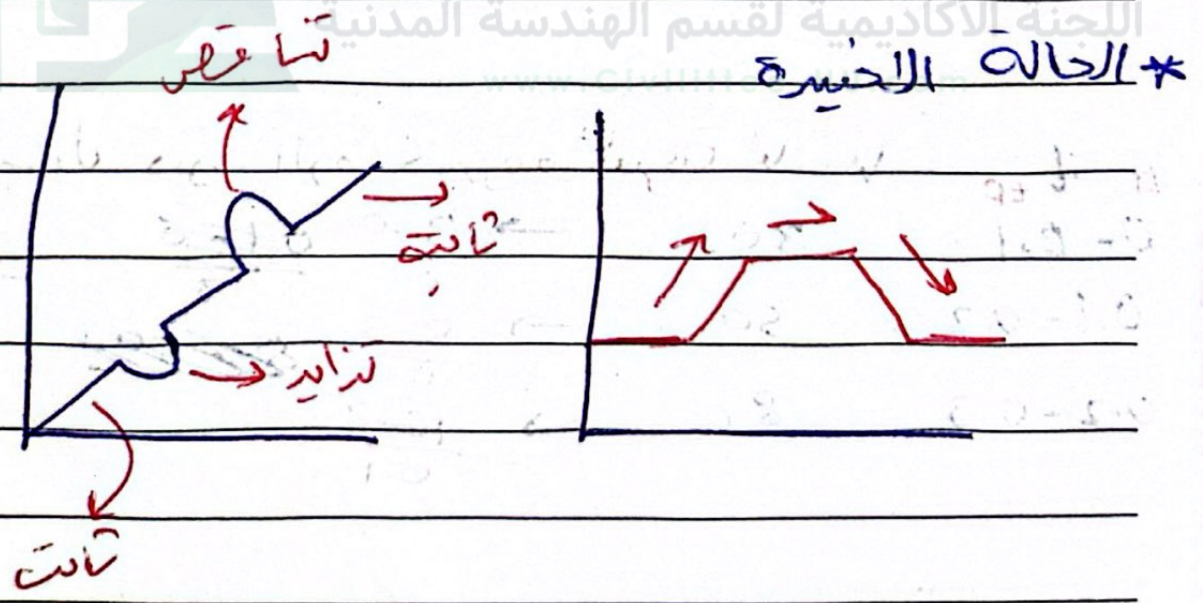 اللجنة الأكاديمية لقسم الهندسة المدنية
* الحالة الاخيرة
تناقص
ثابتة
تزايد
ثابت